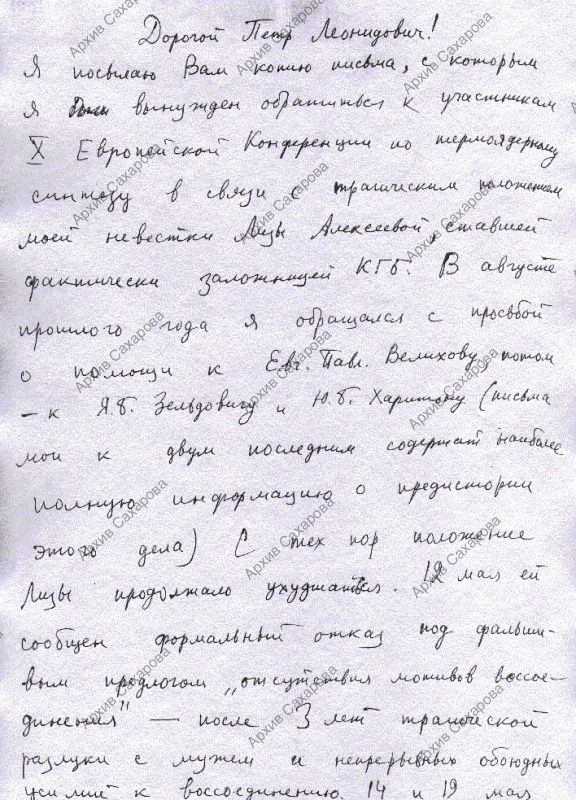 Дорогой Петр Леонидович!
Я посылаю Вам копию письма, с которым
я был вынужден обратиться к участникам
X Европейской Конференции по термоядерному
синтезу в связи с трагическим положением
моей невестки Лизы Алексеевой, ставшей
фактически заложницей КГБ. В августе
прошлого года я обращался с просьбой
о помощи к Евг. Павл. Велихову, потом
– к Я.Б. Зельдовичу и Ю.Б. Харитону (письма
мои к двум последним содержат наиболее
полную информацию о предистории
этого дела) С тех пор положение
Лизы продолжало ухудшаться. мая ей
сообщен формальный отказ под фальши-
вым предлогом „отсутствия мотивов воссое-
динения" — после 3 лет трагической
разлуки с мужем и непрерывных обоюдных
усилий к воссоединению. 14 и 19 мая
Архив Сахарова